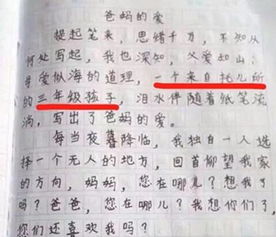 爸妈的爱
提起笔来，思绪千万，不知从
何处写起，我也深知，父爱如山，
母爱似海的道理，一个来自托儿所
的三年级孩子，泪水伴随着纸笔流
淌，写出了爸妈的爱。
每当夜暮降临，我独自一人选
择一个无人的地方，回首仰望我家
的方向，妈妈，您在哪儿？想我了
吗？爸爸，您在哪儿？我想你们了，
您们还喜欢我吗？